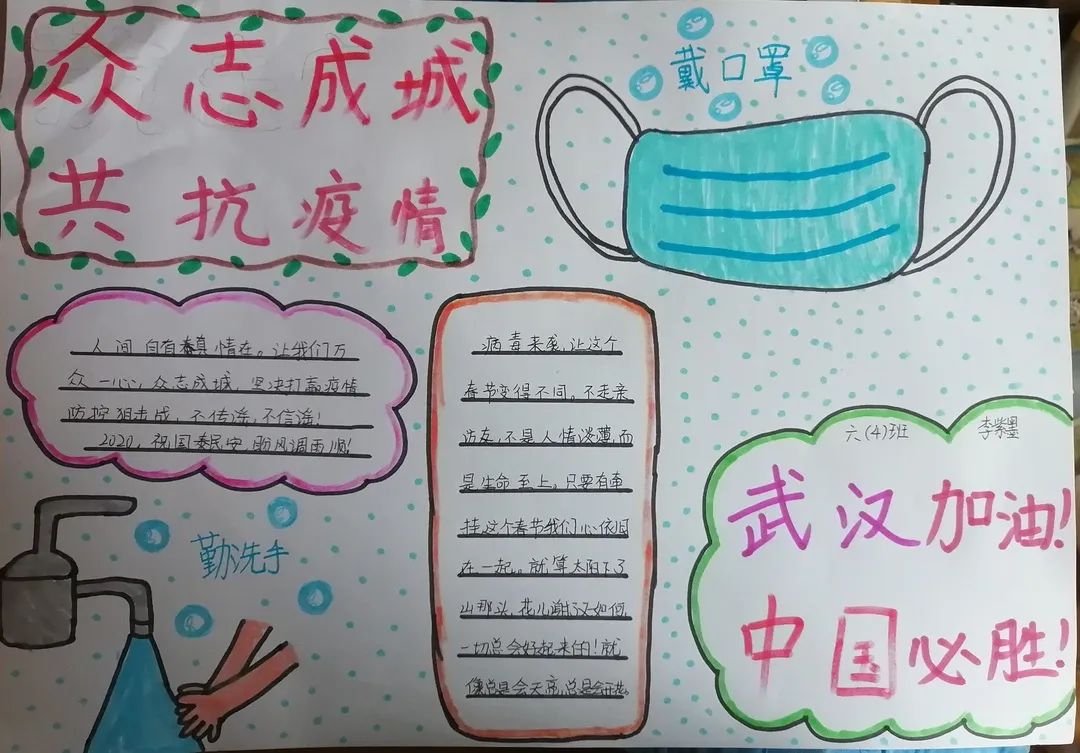 众志成城
共抗疫情
戴口罩
人间自有真情在。让我们万
众一心,众志成城,坚决打赢疫情
防控狙击战,不传谣,不信谣!
2020,祝国泰民安,风调雨顺!
病毒来袭,让这个
春节变得不同。不走亲
访友,不是人情淡薄,而
是生命至上。只要有牵
挂,这个春节我们心依旧
在一起。就算太阳下了
山那头,花儿谢了又如何,
一切总会好起来的!就
像总是会天亮,总是会开花
六(4)班 李紫墨
武汉加油!
中国必胜!
勤洗手